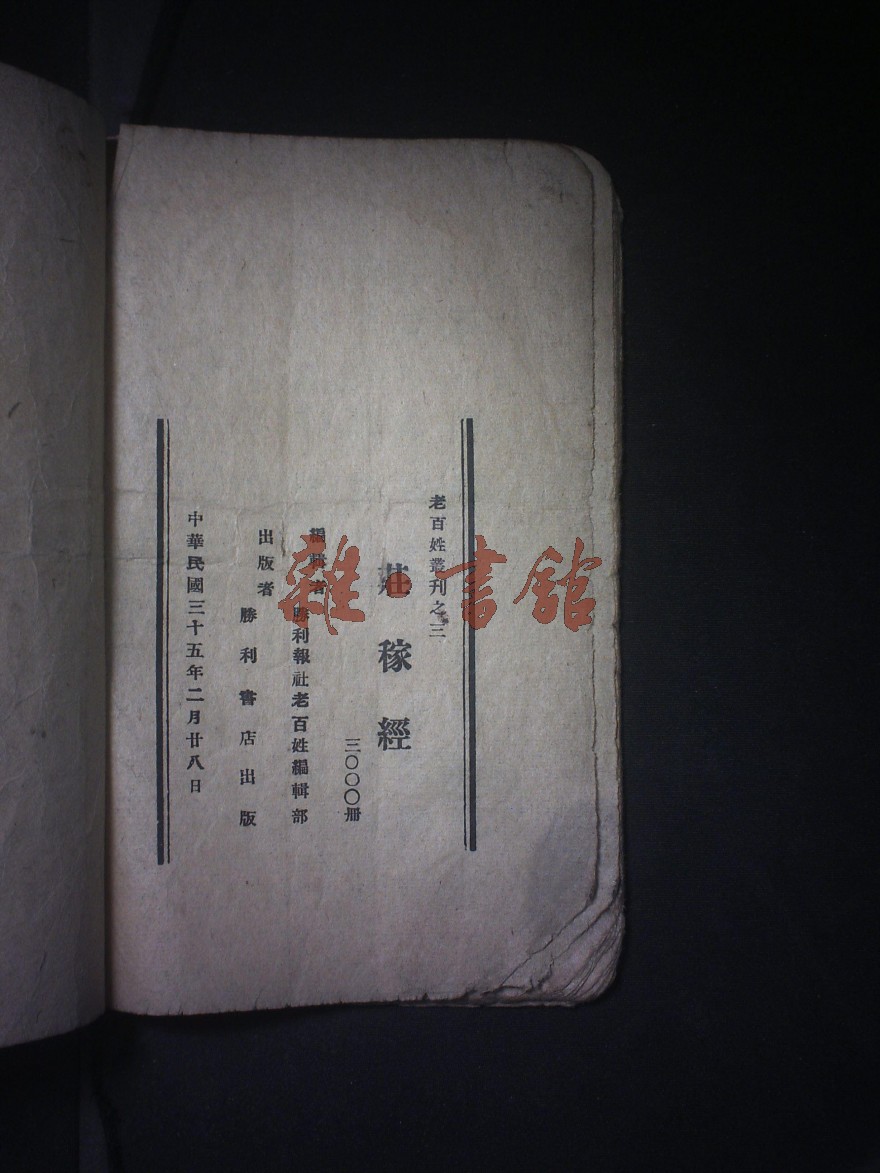 老百姓叢刊之三
莊稼經
三〇〇〇冊
編輯者
勝利報社老百姓編輯部
出版者
勝利書店出版
中華民國三十五年二月廿八日
雜·書館